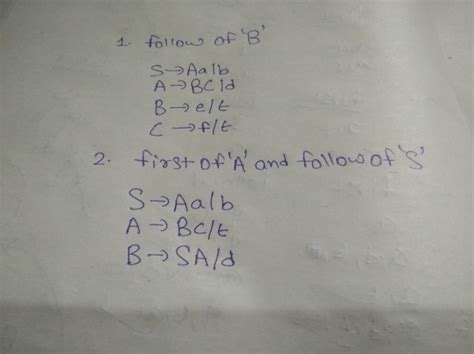 1. follow of 'B'
S→Aa/b
A→BC/d
B→e/t
C→f/t
2. first of 'A' and follow of 'S'
S→Aa/b
A→BC/t
B→SA/d